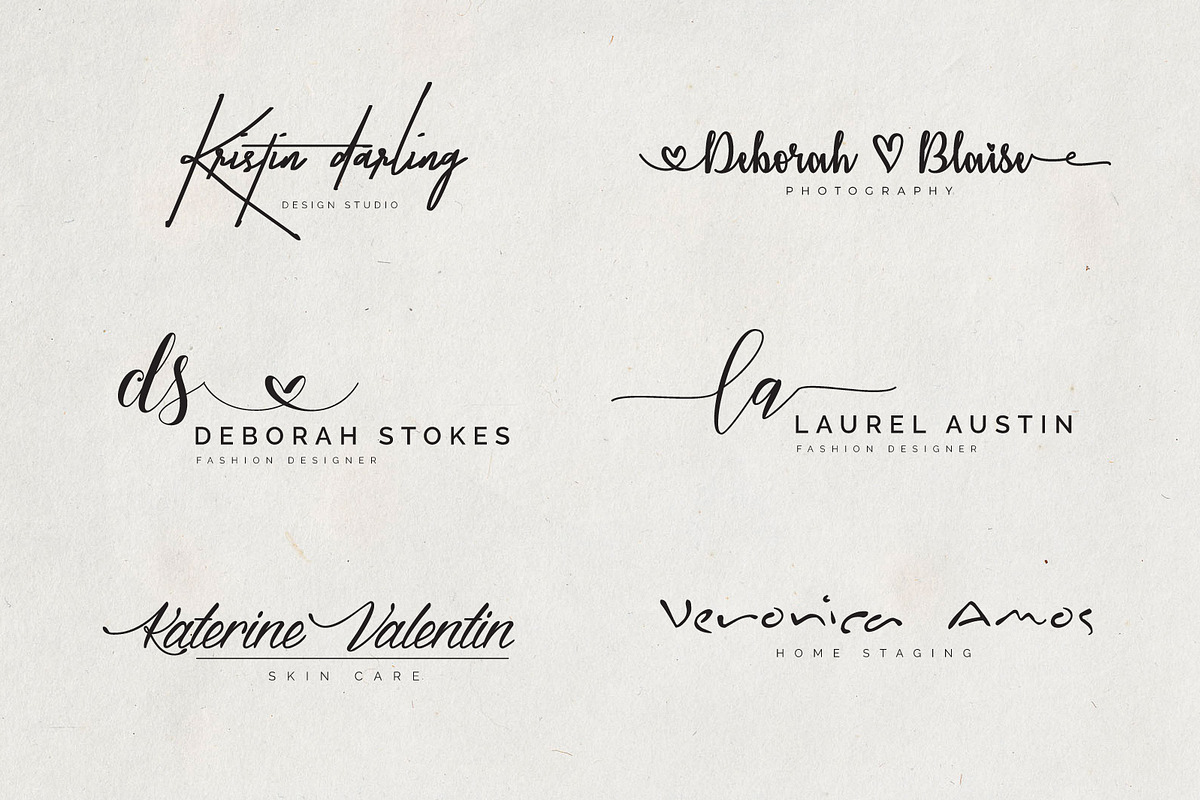 Kristin darling
DESIGN STUDIO
Deborah ♡ Blaise
PHOTOGRAPHY
ds
DEBORAH STOKES
FASHION DESIGNER
la
LAUREL AUSTIN
FASHION DESIGNER
Katerine Valentin
SKIN CARE
Veronica Amos
HOME STAGING